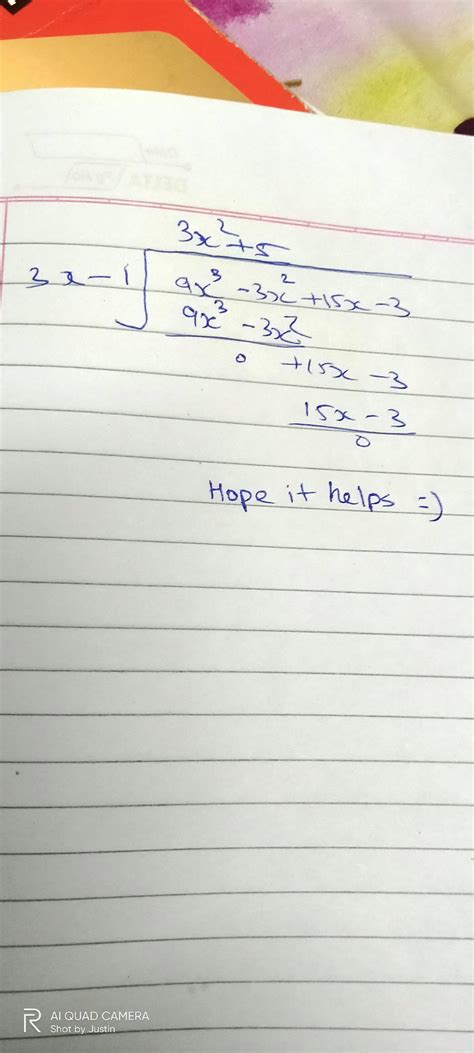 3x² + 5
3x - 1 √ 9x³ - 3x² + 15x - 3
9x³ - 3x²
0 + 15x - 3
15x - 3
0
Hope it helps =)
R AI QUAD CAMERA
Shot by Justin